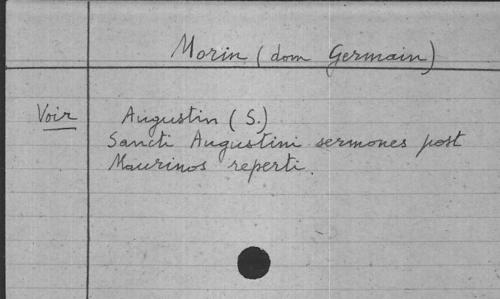 Morin (dom Germain)
Voir Augustin (S.)
Sancti Augustini sermones post
Maurinos reperti.